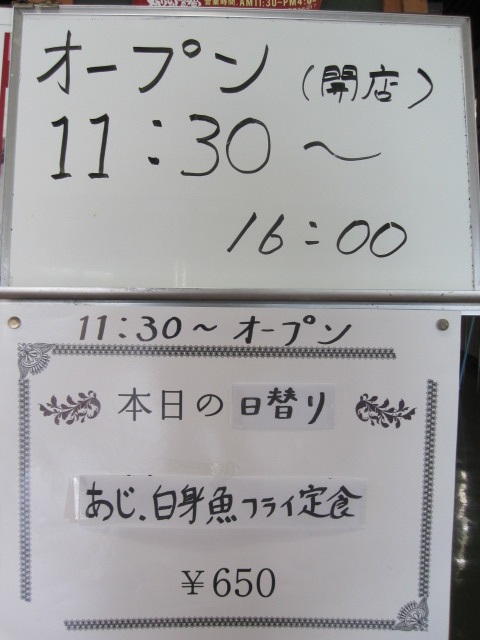 営業時間.AM11:30-PM4:0
オープン (開店)
11:30～
16:00
11:30～ オープン
本日の日替り
あじ.白身魚フライ定食
￥650